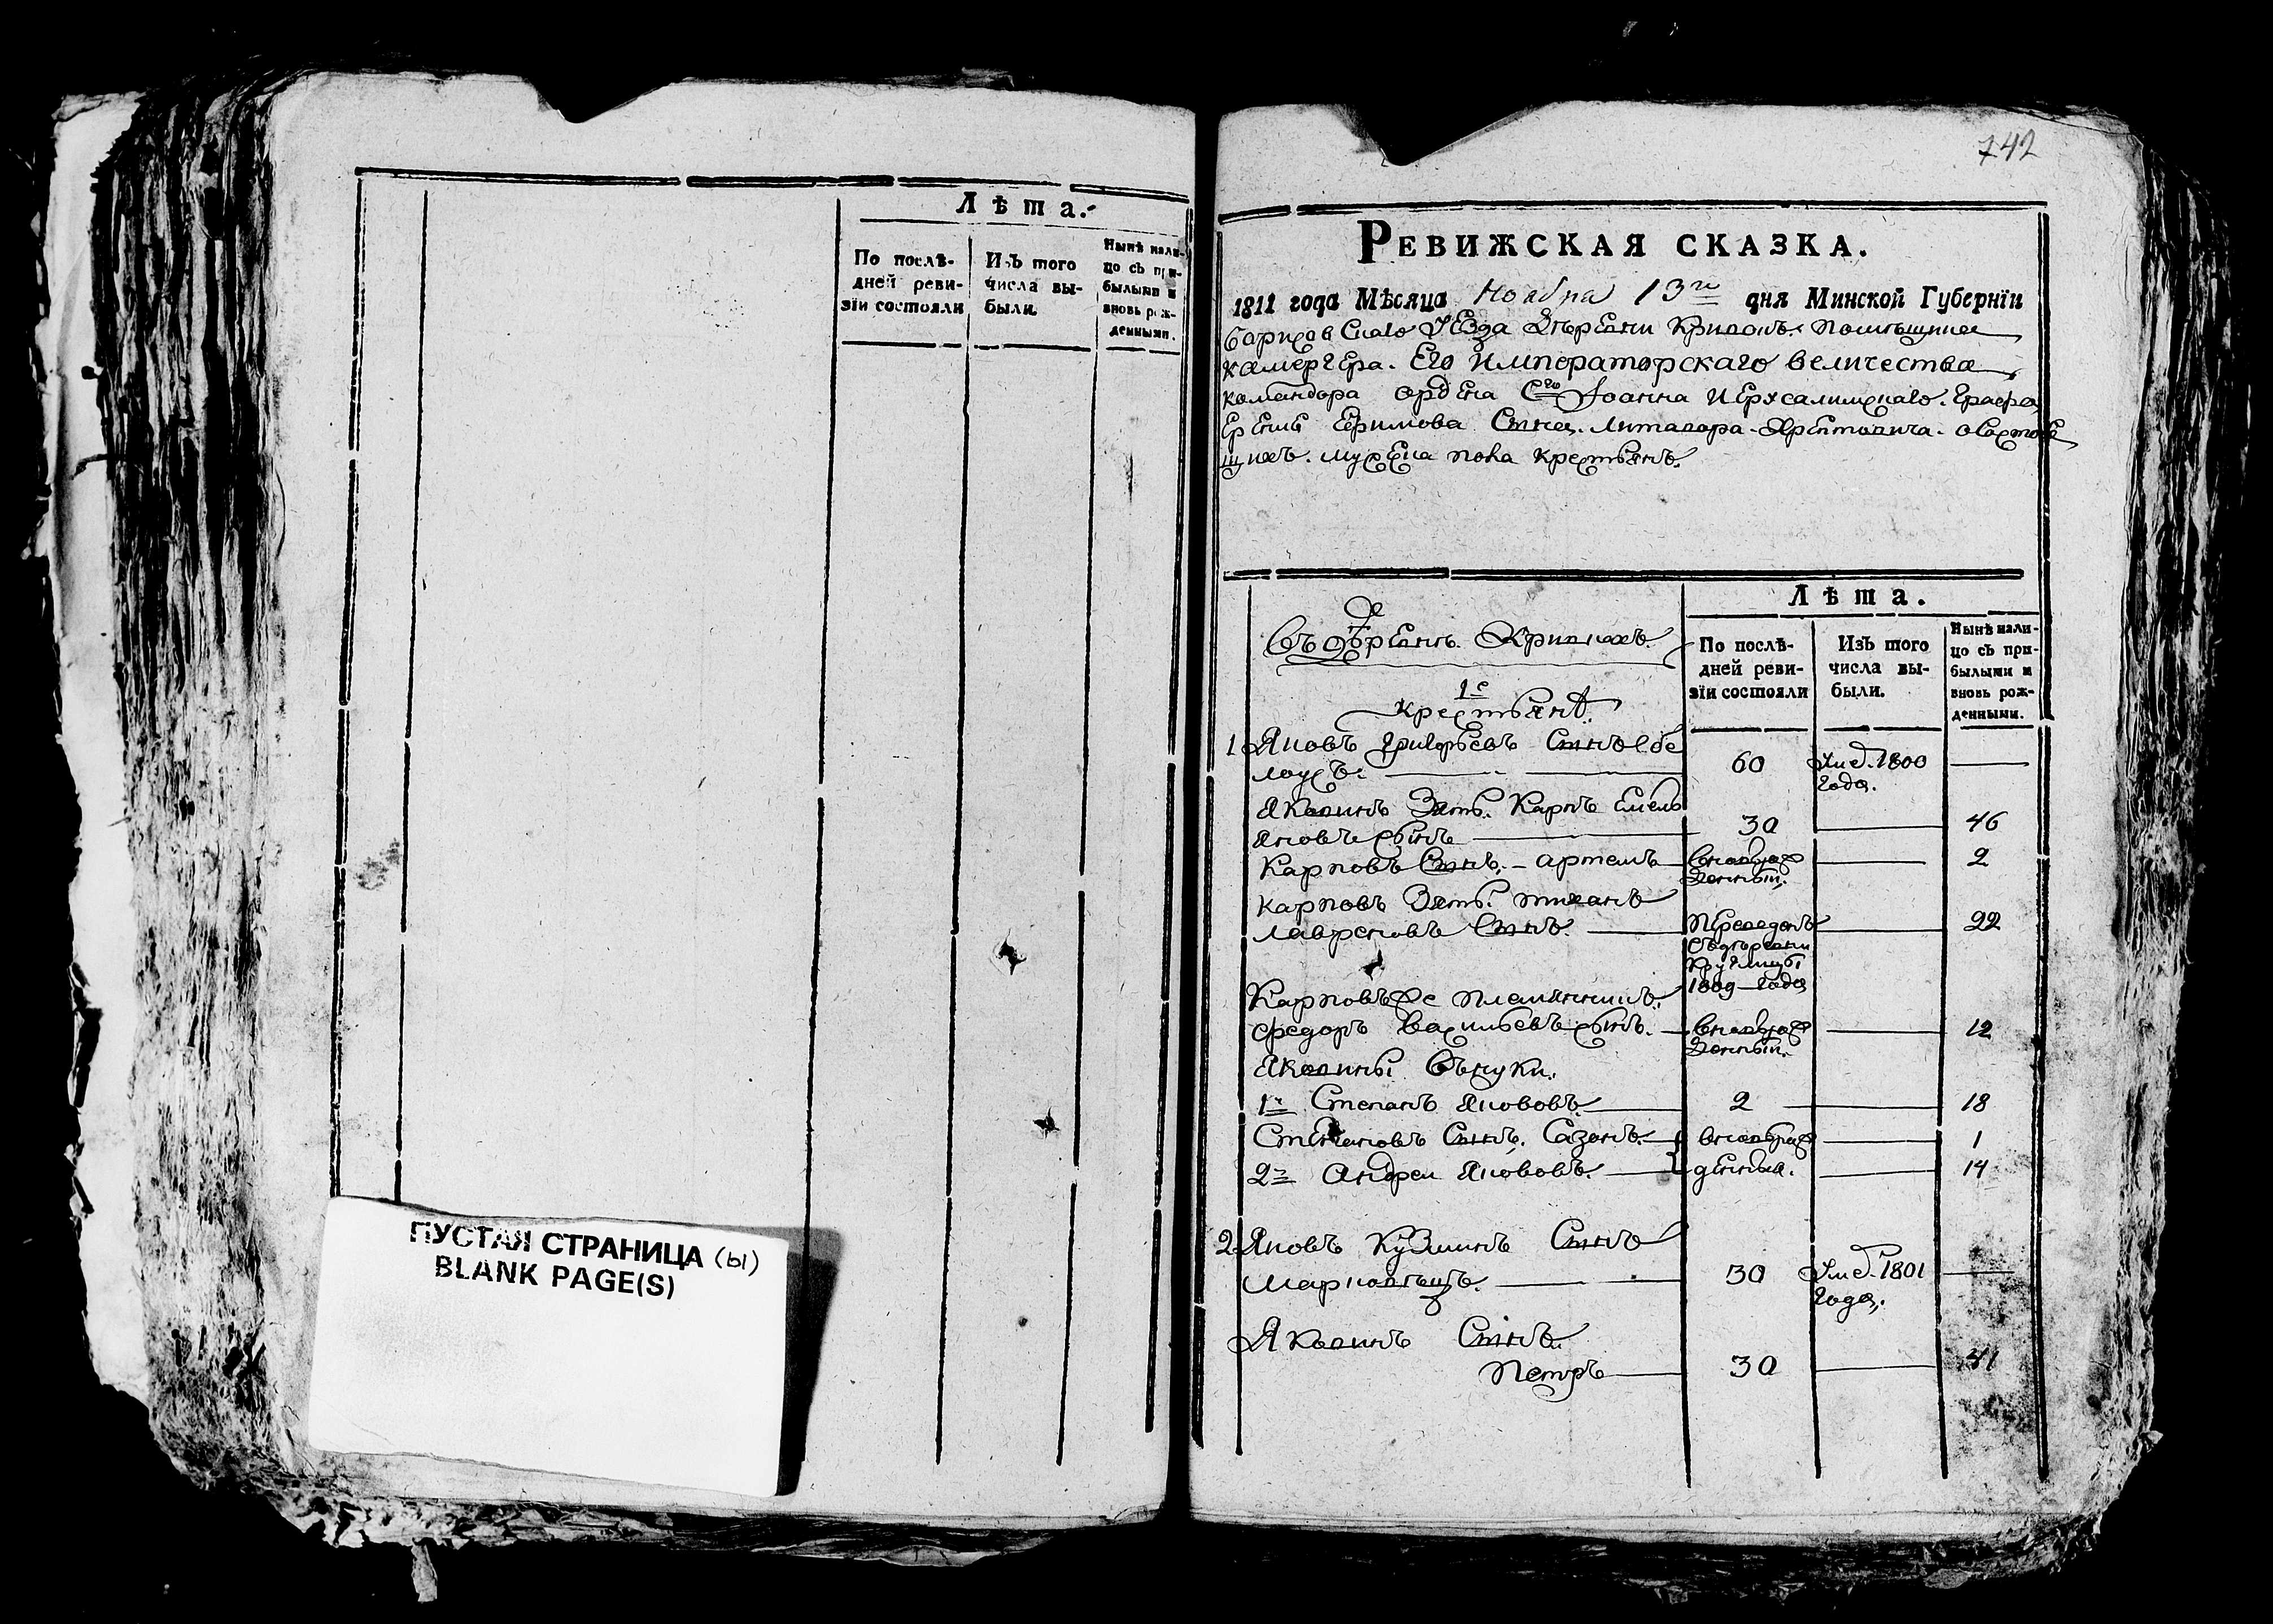 Лѣта.
По послѣ-
дней реви-
зіи состояли
Изъ того
числа вы-
были.
Нынѣ нали-
цо съ при-
былыми и
вновь рож-
денными.
ПУСТАЯ СТРАНИЦА (ы)
BLANK PAGE(S)
742
РЕВИЖСКАЯ СКАЗКА.
1811 года Мѣсяца Ноября 13го дня Минской Губерніи
Борисовскаго уезда помещика
камергера. Его Императорскаго величества
командора ордена Сго Іоанна Иерусалимскаго.
сына
мужеска пола крестьянъ.
Лѣта.
По послѣ-
дней реви-
зіи состояли
Изъ того
числа вы-
были.
Нынѣ нали-
цо съ при-
былыми и
вновь рож-
денными.
1е
крестьянъ
1 Яковъ Григорьевъ Сынъ
60 1800 —
года.
Яковинъ Зять. Карпъ Емель
яновъ сынъ — 30 — 46
Карповъ Сынъ. - артемъ — — 2
Карповъ Зять.
Лавреновъ Сынъ. — — 22
1809 года
Карповъ же племянникъ.
Федоръ Васильевъ сынъ. — — 12
Яковины Вънуки.
1й Степанъ Яковов. — 2 — 18
Степановъ Сынъ. Сазонъ. — — 1
2й Андреи Яковов. — — 14
2 Яковъ Кузминъ Сынъ
— 30 1801 —
года.
Яковинъ Сынъ
Петръ — 30 — 41